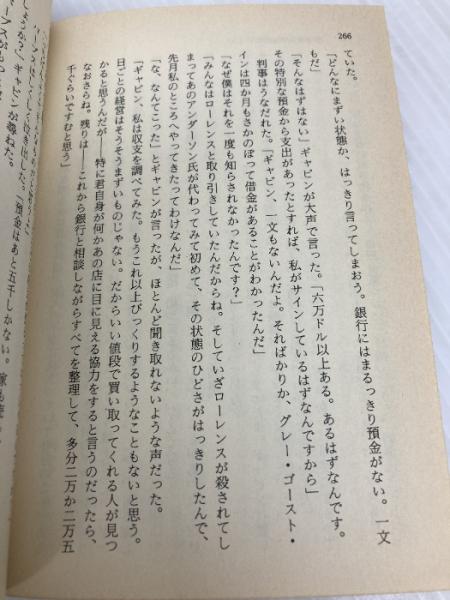 266
ていた。
「どんなにまずい状態か、はっきり言ってしまおう。銀行にはまるっきり預金がない。一文
もだ」
「そんなはずはない」ギャビンが大声で言った。「六万ドル以上ある。あるはずなんです。
その特別な預金から支出があったとすれば、私がサインしているはずなんですから」
判事はうなだれた。「ギャビン、一文もないんだよ。そればかりか、グレー・ゴースト・
インは四か月もさかのぼって借金があることがわかったんだ」
「なぜ僕はそれを一度も知らされなかったんです?」
「みんなはローレンスと取り引きしていたんだからね。そしていざローレンスが殺されてし
まってあのアンダーソン氏が代わってみて初めて、その状態のひどさがはっきりしたんで、
先月私のところへやってきたってわけなんだ」
「な、なんてこった」とギャビンが言ったが、ほとんど聞き取れないような声だった。
「ギャビン、私は収支を調べてみた。もうこれ以上びっくりするようなこともないと思う。
日ごとの経営はそうそうまずいものじゃない。だからいい値段で買い取ってくれる人が見つ
かると思うんだが――特に君自身が何かあの店に目に見える協力をすると言うのだったら、
なおさらね。残りは――これから銀行と相談しながらすべてを整理して、多分二万か二万五
千ぐらいですむと思う」
ギャビンが尋ねた。
「預金はあと五千しかない。